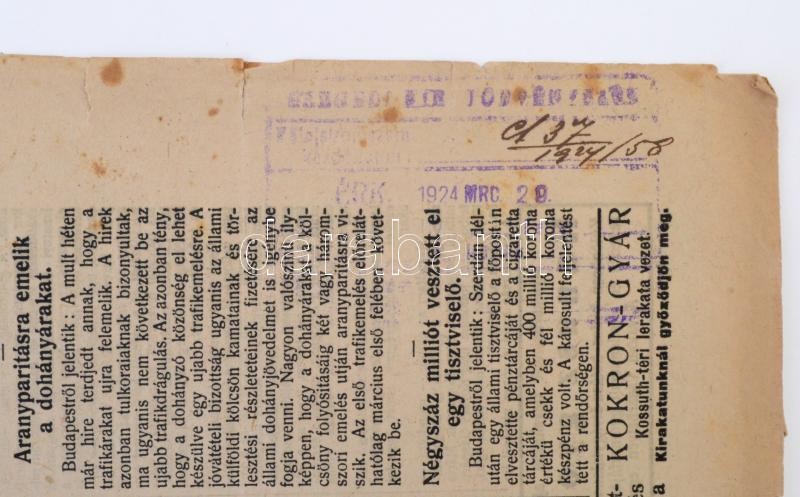 Aranyparitásra emelik
a dohányárakat.
Budapestről jelentik: A mult héten
már hire terjedt annak, hogy a
trafikárakat ujra felemelik. A hirek
azonban tulkoraiaknak bizonyultak,
ma ugyanis nem következett be az
ujabb trafikdrágulás. Az azonban tény,
hogy a dohányzó közönség el lehet
készülve egy ujabb trafikemelésre. A
jóvátételi bizottság ugyanis az állami
külföldi kölcsön kamatainak és tör-
lesztési részleteteinek fizetésére az
állami dohányjövedelmet is igénybe
fogja venni. Nagyon valószinü ily-
képpen, hogy a dohányárakat a köl-
csöny folyósitásáig két vagy három-
szori emelés utján aranyparitásra vi-
szik. Az első trafikemelés előrelát-
hatólag március első felében követ-
kezik be.
Négyszáz milliót vesztett el
egy tisztviselő.
Budapestről jelentik: Szerdán dél-
után egy állami tisztviselő a főpostán
elvesztette pénztárcáját és a cigaretta
tárcáját, amelyben 400 millió korona
értékü csekk és fél millió korona
készpénz volt. A károsult feljelentést
tett a rendőrségen.
KOKRON-GYÁR
Kossuth-téri lerakata vezet.
a Kirakatunknál győződjön meg.
TÖRVÉNYSZÉK
ÉRK. 1924 MRC. 29.
1924/58
darabanth